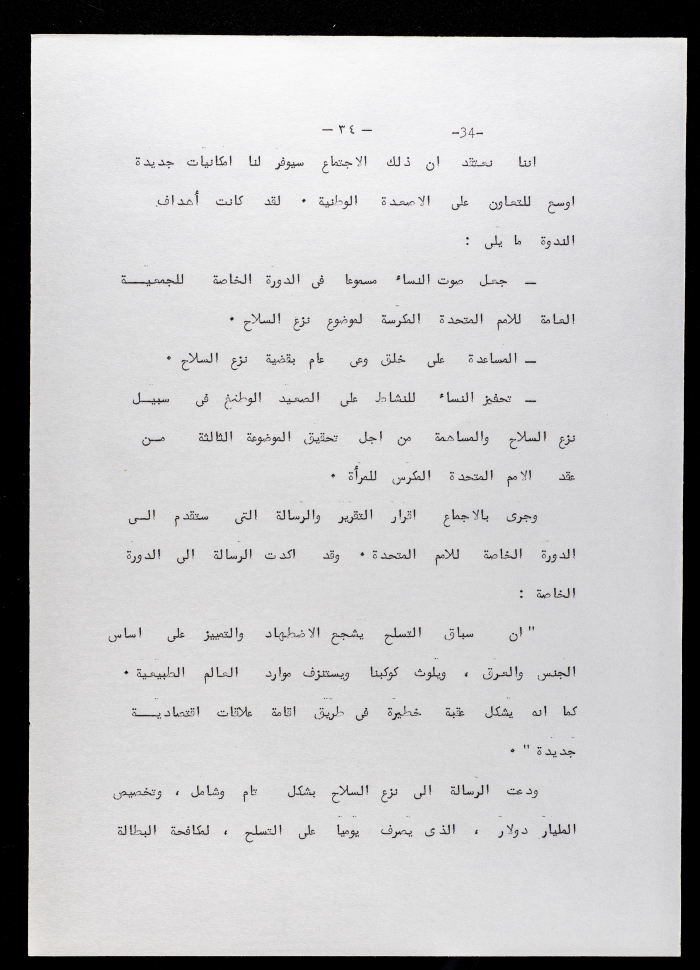 — ٣٤ —   -34-
اننا نعتقد ان ذلك الاجتماع سيوفر لنا امكانيات جديدة
اوسع للتعاون على الاصعدة الوطنية ٠ لقد كانت أهداف
الندوة ما يلى :
— جعل صوت النساء مسموعا فى الدورة الخاصة للجمعيـــة
العامة للامم المتحدة المكرسة لموضوع نزع السلاح ٠
— المساعدة على خلق وعى عام بقضية نزع السلاح ٠
— تحفيز النساء للنشاط على الصعيد الوطنى فى سبيــل
نزع السلاح والمساهمة من اجل تحقيق الموضوعة الثالثة مــن
عقد الامم المتحدة المكرس للمرأة ٠
وجرى بالاجماع اقرار التقرير والرسالة التى ستقدم الــى
الدورة الخاصة للامم المتحدة ٠ وقد اكدت الرسالة الى الدورة
الخاصة :
"ان سباق التسلح يشجع الاضطهاد والتمييز على اساس
الجنس والعرق ، ويلوث كوكبنا ويستنزف موارد العالم الطبيعية ٠
كما انه يشكل عقبة خطيرة فى طريق اقامة علاقات اقتصاديـــة
جديدة " ٠
ودعت الرسالة الى نزع السلاح بشكل تام وشامل ، وتخصيص
المليار دولار ، الذى يصرف يوميا على التسلح ، لمكافحة البطالة